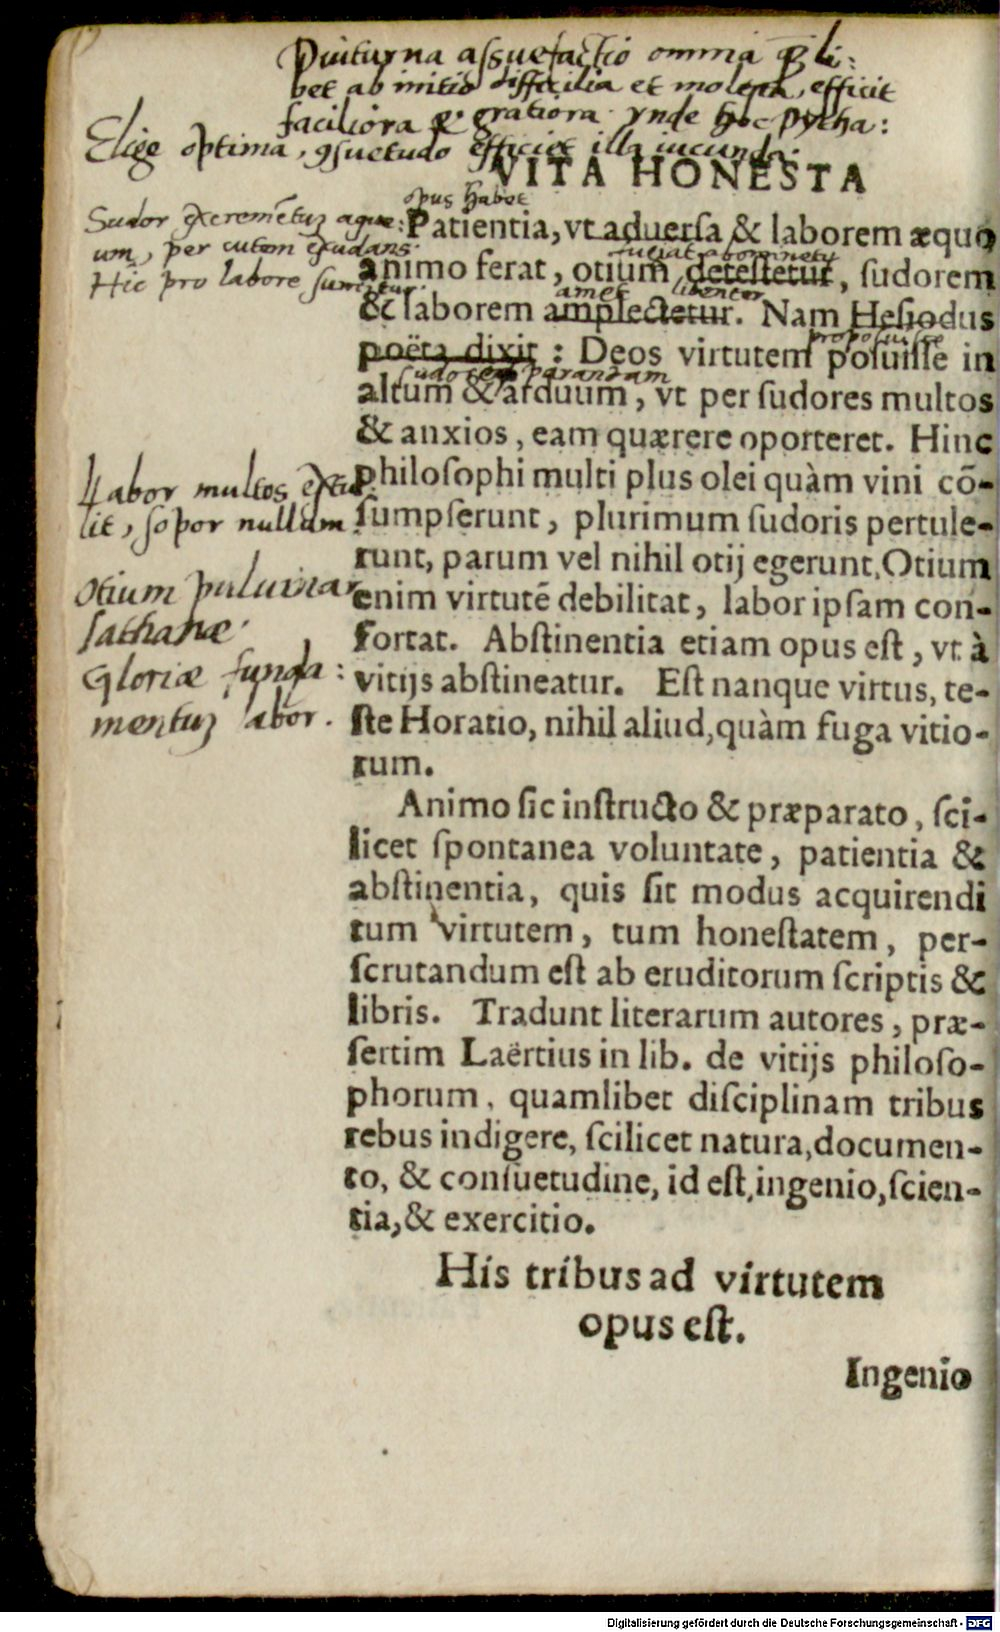 Diuturna assuefactio omnia q̃ li:
bet ab initio difficilia et molesta, efficit
faciliora & gratiora. Vnde hoc Pytha:
Elige optima, ꝯsuetudo efficiet illa iucunda.
VITA HONESTA
opus habet
Sudor excremẽtuʒ aque:
um, per cutem exudans.
Hic pro labore sumitur.
Patientia, vt aduerſa & laborem æquo
fugiat abominetur
animo ferat, otium deteſtetur, ſudorem
amet libenter
& laborem amplectetur. Nam Heſiodus
proposuisse
poëta dixit : Deos virtutem poſuiſſe in
sudorem parandam
altum & arduum, vt per ſudores multos
& anxios, eam quærere oporteret. Hinc
Labor multos extu
lit, sopor nullum
philoſophi multi plus olei quàm vini cõ-
ſumpſerunt, plurimum ſudoris pertule-
runt, parum vel nihil otij egerunt. Otium
Otium puluinar
sathanæ.
enim virtutẽ debilitat, labor ipſam con-
fortat. Abſtinentia etiam opus eſt, vt à
Gloriæ funda:
mentuʒ labor.
vitijs abſtineatur. Eſt nanque virtus, te-
ſte Horatio, nihil aliud, quàm fuga vitio-
rum.
Animo ſic inſtructo & præparato, ſci-
licet ſpontanea voluntate, patientia &
abſtinentia, quis ſit modus acquirendi
tum virtutem, tum honeſtatem, per-
ſcrutandum eſt ab eruditorum ſcriptis &
libris. Tradunt literarum autores, præ-
ſertim Laërtius in lib. de vitijs philoſo-
phorum, quamlibet diſciplinam tribus
rebus indigere, ſcilicet natura, documen-
to, & conſuetudine, id eſt, ingenio, ſcien-
tia, & exercitio.
His tribus ad virtutem
opus eſt.
Ingenio
Digitalisierung gefördert durch die Deutsche Forschungsgemeinschaft - DFG